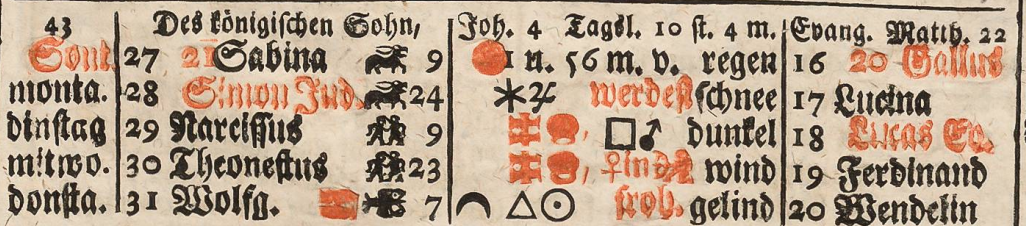 43 Des königischen Sohn, Joh. 4 Tagsl. 10 st. 4 m. Evang. Matth. 22
Sont. 27 21 Sabina 9 1 n. 56 m. v. regen 16 20 Gallus
monta. 28 Simon Jud. 24 ⚹♃ werdest schnee 17 Lucina
dinstag 29 Narcissus 9 □♂ dunkel 18 Lucas Ev.
mitwo. 30 Theonestus 23 ♀in wind 19 Ferdinand
donsta. 31 Wolfg. 7 △☉ gelind 20 Wendelin